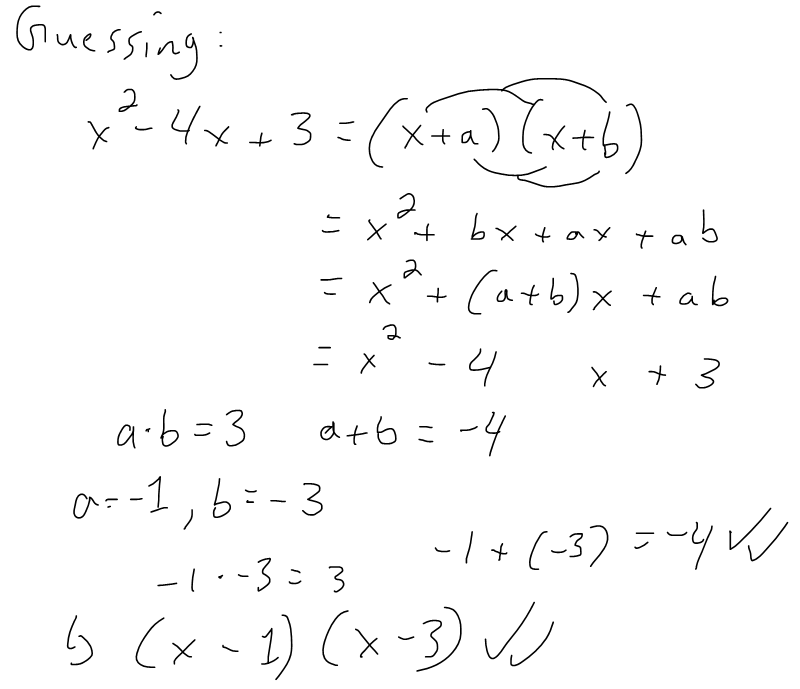 Guessing:
x² - 4x + 3 = (x+a)(x+b)
= x² + bx + ax + ab
= x² + (a+b)x + ab
= x² - 4 x + 3
a·b = 3 a+b = -4
a=-1, b=-3
-1 · -3 = 3 -1 + (-3) = -4 ✓✓
↳ (x - 1)(x - 3) ✓✓